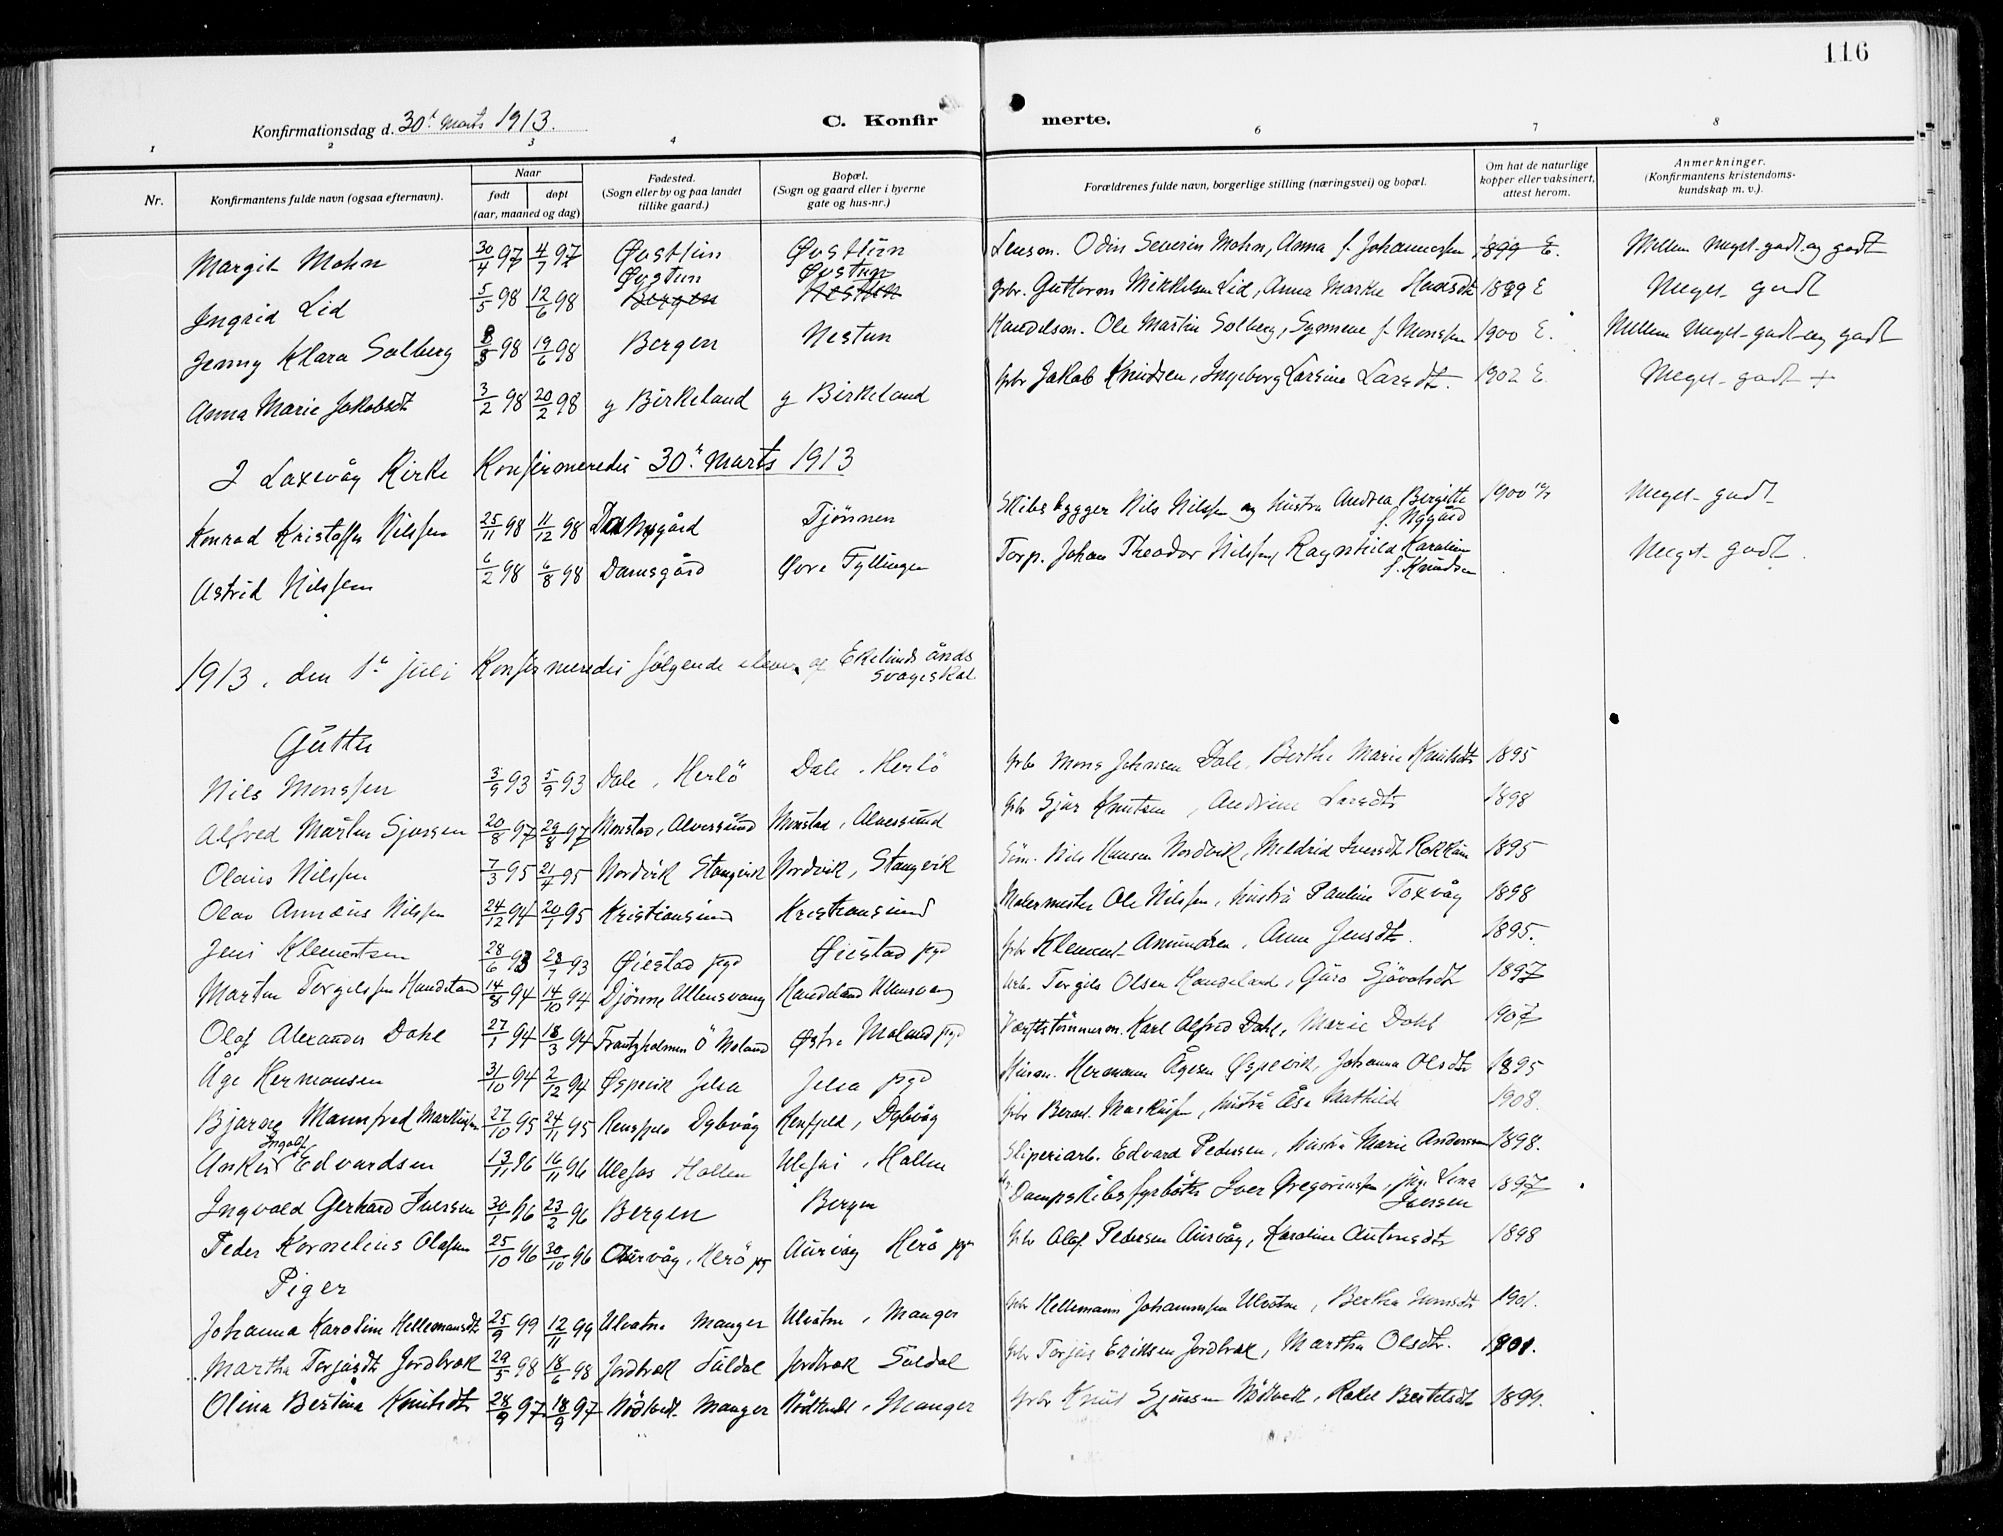 116
Konfirmationsdag d. 30te marts 1913. C. Konfirmerte.
1 2 3 4 6 7 8
Nr. Konfirmantens fulde navn (ogsaa efternavn). Naar født døpt (aar, maaned og dag) Fødested. (Sogn eller by og paa landet tillike gaard.) Bopæl. (Sogn og gaard eller i byerne gate og hus-nr.) Forældrenes fulde navn, borgerlige stilling (næringsvei) og bopæl. Om hat de naturlige kopper eller vaksinert, attest herom. Anmerkninger. (Konfirmantens kristendomskundskap m. v.).
Margit Mohn 30/4 97 4/7 97 Øvsttun Øvsttun Odin Severin Mohn, Anna f. Johannessen 1899 E. Mellem meget godt og godt
Ingrid Lid 5/5 98 12/6 98 Øvstun Bergen Øvstun Nesttun Gbr. Guttorm Mikkelsen Lid, Anna Marke 1899 E Meget godt
Jenny Klara Solberg 8/3 98 19/6 98 Bergen Nestun Handelsm. Ole Martin Solberg, Synneve f. Monssen 1900 E. Mellem Meget godt og godt
Anna Marie Jakobsdt 3/2 98 20/2 98 g Birkeland g Birkeland Gbr Jakob Knudsen, Ingeborg Larsine Larsdt. 1902 E. Meget godt +
I Laxevåg Kirke Konfirmeredes 30te marts 1913
Konrad Kristoffer Nilssen 25/11 98 11/12 98 Nygård Tjønnen Skibsbygger Nils Nilssen og hustru Andrea Bergitte f. Nygård 1900 Meget godt
Astrid Nilssen 6/2 98 6/8 98 Damsgård Øvre Fyllingen Torp. Johan Theodor Nilssen, Ragnhild Karoline f. Knudsen Meget godt.
1913, den 1te juli Konfirmeredes følgende elever af Ekelunds åndssvageskole
Gutter
Nils Monssen 3/9 93 5/9 93 Dale, Herlö Dale, Herlö Gbr Mons Johnsen Dale, Berthe Marie Knutsdtr 1895
Alfred Martin Sjursen 20/8 97 29/8 97 Monstad, Alversund Monstad, Alversund Gbr Sjur Knutsen, Andrine Larsdtr 1898
Olaus Nilssen 7/3 95 21/4 95 Nordvik Stangvik Nordvik, Stangvik Nils Hansen Nordvik, Meldrid Iversdt 1895
Olav Annæus Nilssen 24/12 94 20/1 95 Kristiansund Kristiansund Malermester Ole Nilssen, hustru Pauline Toxvåg 1898
Jens Klementsen 28/6 93 23/7 93 Øiestad pgd Øiestad pgd Gbr Klement Amundsen, Anne Jensdtr. 1895.
Martin Torgilssen Handeland 14/8 94 14/10 94 Djönne Ullensvang Handeland Ullensvang Arb. Torgils Olsen Handeland, Guro Sjövatsdt 1897
Olaf Alexander Dahl 27/1 94 18/3 94 Frantzholmen Ö Moland Østre Moland pgd Karl Alfred Dahl, Marie Dahl 1907
Åge Hermansen 31/10 94 2/12 94 Øspevik Jelsa Jelsa pgd Husm. Hermann Ågesen Øspevik, Johanna Olsdt 1895
Bjarne Mannfred Markussen 27/10 95 24/11 95 Rensfjeld Dybvåg Rensfjeld, Dybvåg Gbr Bernt Markussen, hustru Åse Mathilde 1908.
Anker Ingolf Edvardsen 13/7 96 16/11 96 Ulefos Hollen Ulefos, Hollen Sliperiarb. Edvard Pedersen, hustru Marie Andersen 1898.
Ingvald Gerhard Iversen 30/1 96 23/2 96 Bergen Bergen Dampskibsfyrbøter Iver Gregoriussen, Lina Iversen 1897
Peder Kornelius Olafsen 25/10 96 30/10 96 Aurvåg, Herö pg Aurvåg Herö pgd Gbr Olaf Pedersen Aurvåg, Karoline Antonsdtr 1898
Piger
Johanna Karoline Hellemansdt 25/9 99 12/11 99 Ulvatne Manger Ulvatne, Manger Gbr Hellemann Johannessen Ulvatne, Bertha 1901.
Martha Torjusdt Jordbrek 29/5 98 18/6 98 Jordbrek Suldal Jordbrek Suldal Gbr Torjus Eriksen Jordbrek, Martha Olsdtr. 1901.
Olina Bertina Knutsdtr 28/9 97 18/9 97 Nödtvedt Manger Nödtvedt, Manger Gbr Knut Sjursen Nödtvedt, Rakel Bertelsdt 1899.